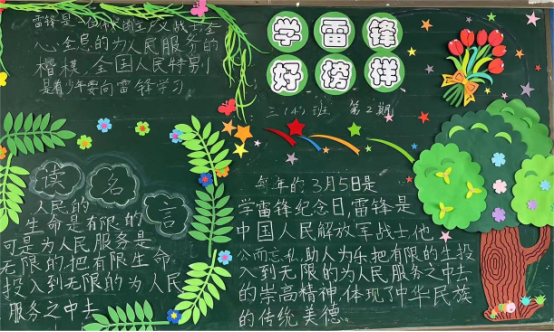 雷锋是一位伟大的共产主义战士全
心全意的为人民服务的
楷模,全国人民特别
是青少年要向雷锋学习
学雷锋
好榜样
三(4)班 第2期
读名言
人民的
生命是有限的
可是为人民服务是
无限的把有限生命
投入到无限的为人民
服务之中去
每年的3月5日是
学雷锋纪念日,雷锋是
中国人民解放军战士他
公而忘私,助人为乐把有限的生投
入到无限的为人民服务之中去
的崇高精神,体现了中华民族
的传统美德.